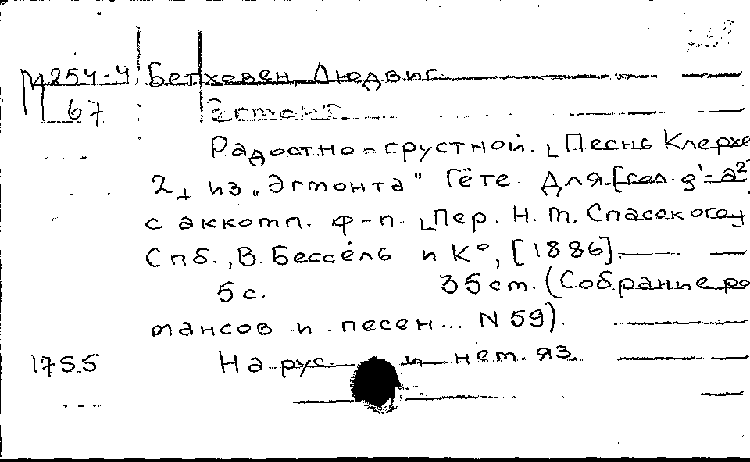 М254-4 Бетховен, Людвиг.
67 Эгмонт.
Радостно-грустной. [Песнь Клерхе
2] из „Эгмонта" Гёте. Для [сол. g'-a²]
с аккомп. ф-п. [Пер. Н. М. Спасского]
Спб., В. Бессель и К°, [1886].
5 с. 35 см. (Собрание ро
мансов и песен... N 59).
1755 На рус. и нем. яз.